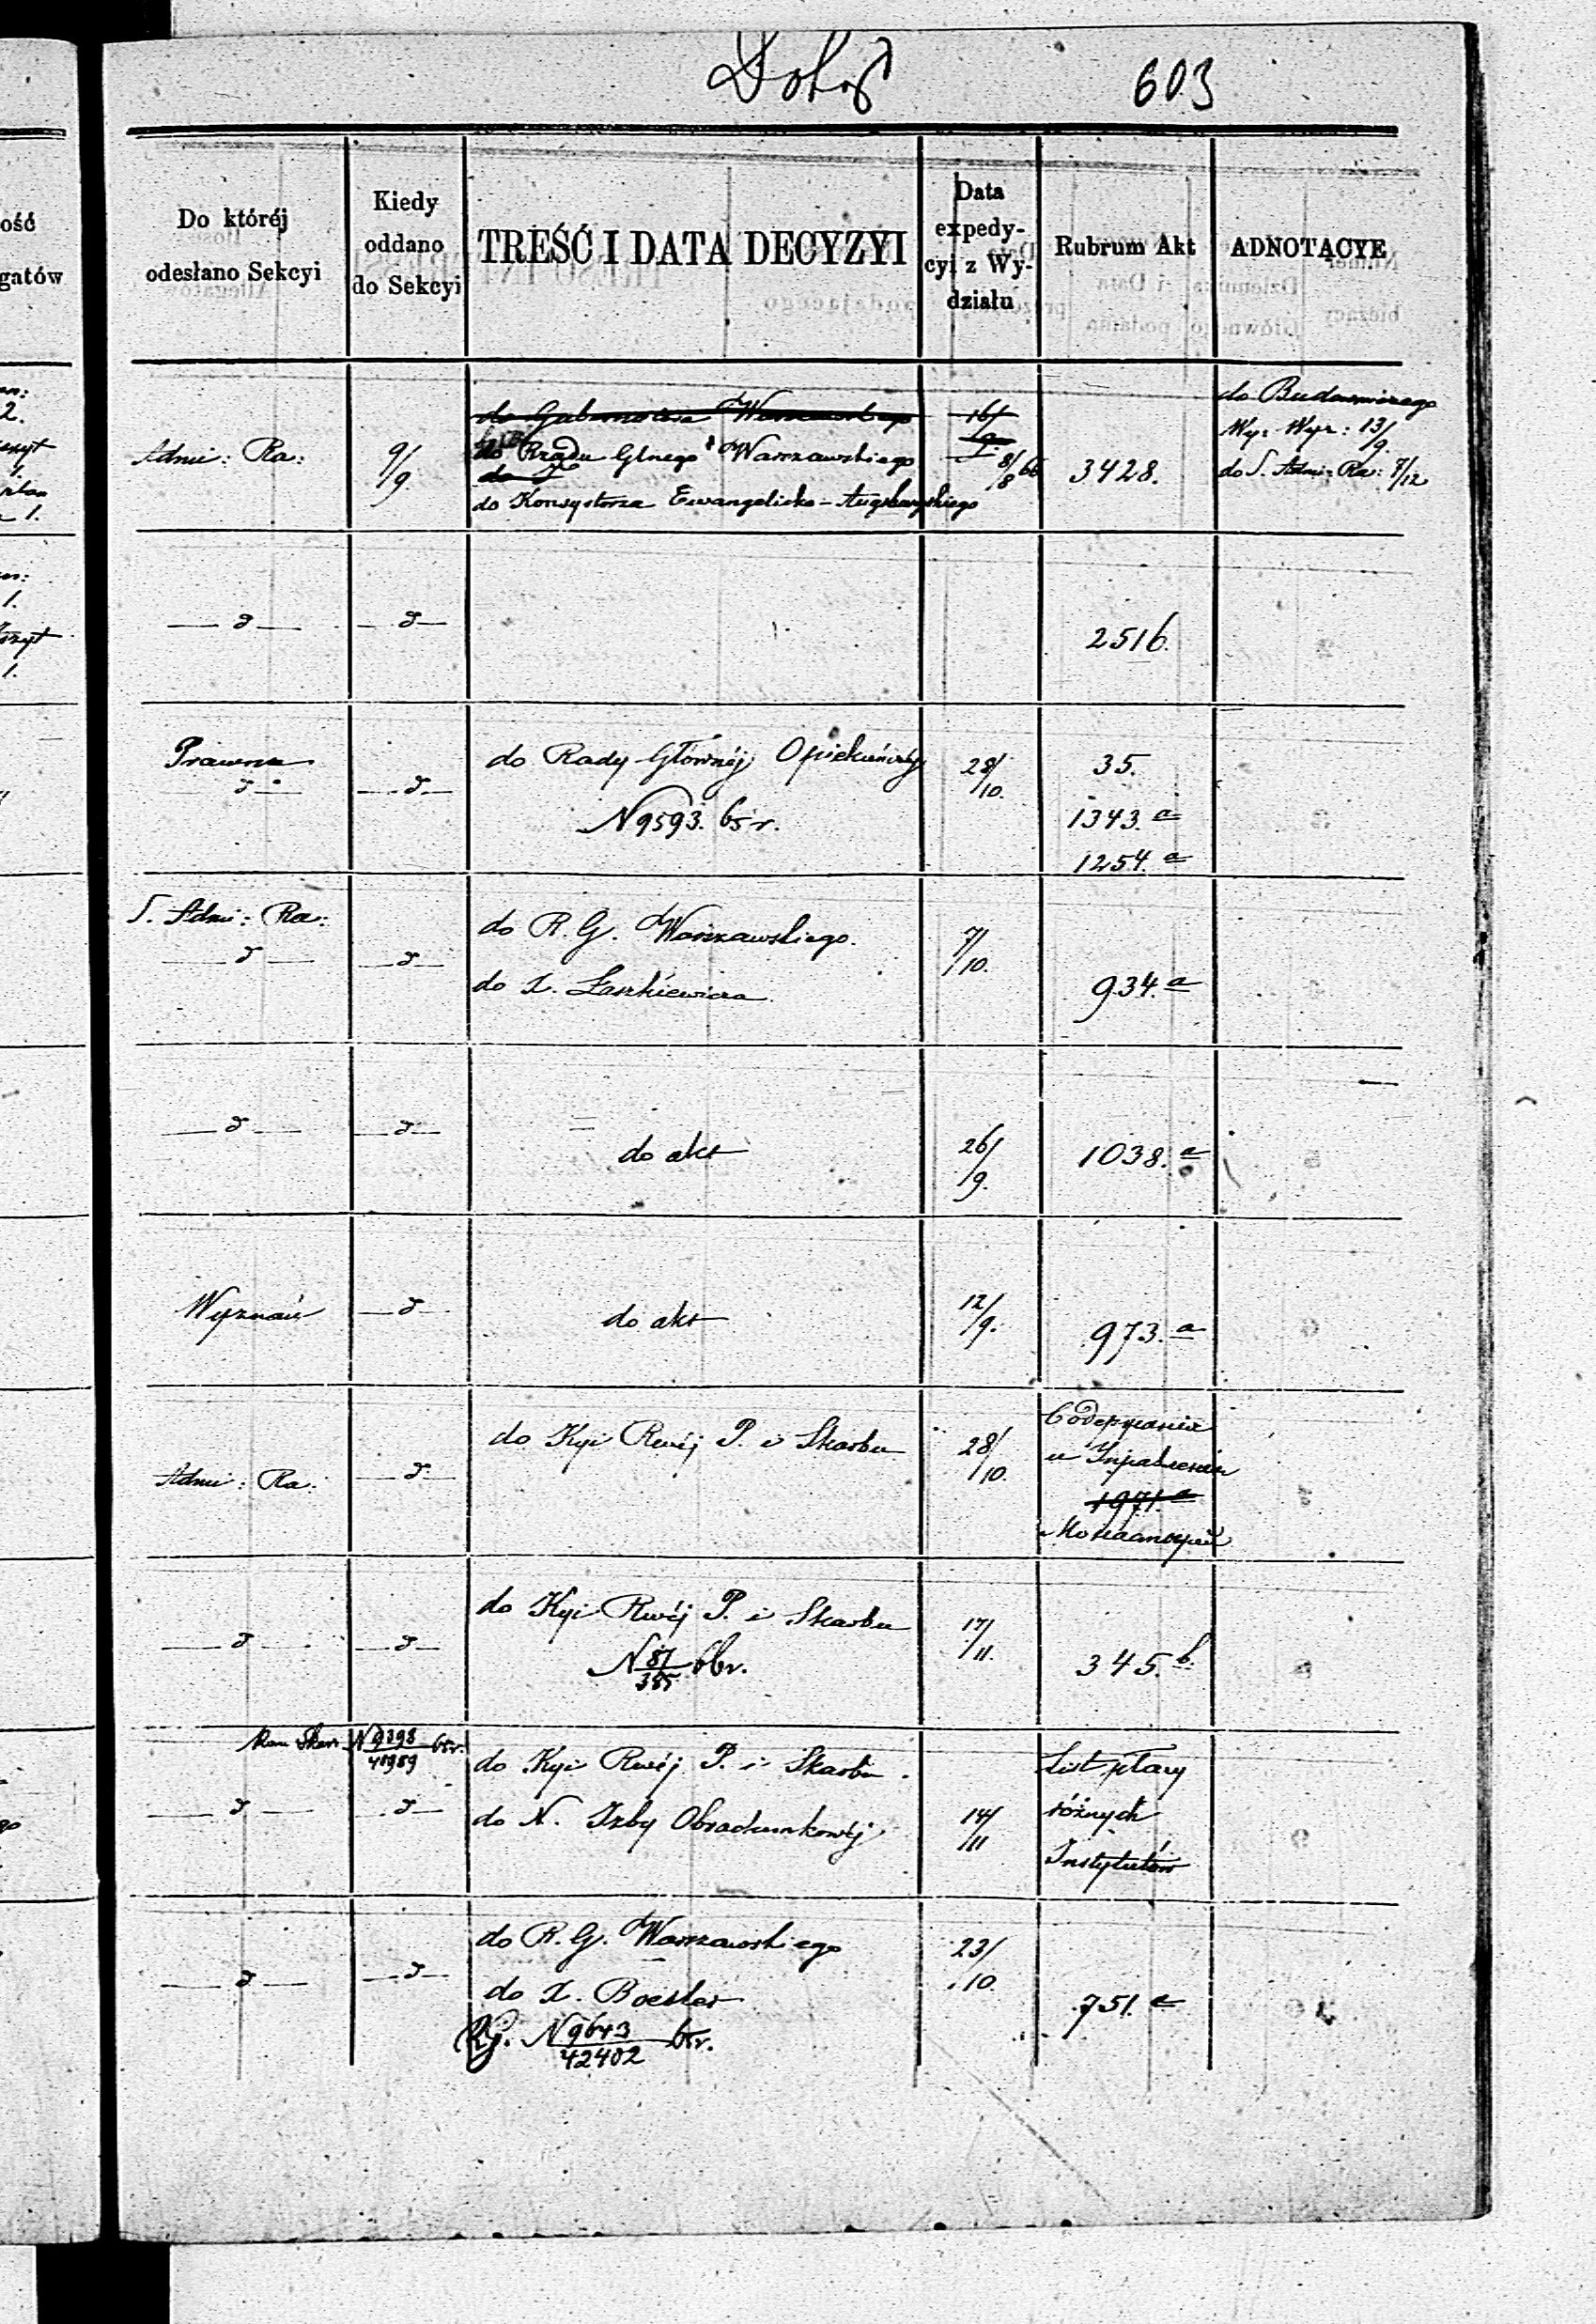 603
Do któréj
odesłano Sekcyi
Kiedy
oddano
do Sekcyi
TREŚĆ I DATA DECYZYI
Data
expedy-
cyi z Wy-
działu
Rubrum Akt
ADNOTACYE
Admi: Ra:
9/9.
do Gubernatora Warszawskiego
do Rządu Glnego Warszawskiego
do Konsystorza Ewangelicko-Augsburskiego
16/9.
8/8 66
3428.
do Budowniczego
Wy. Wyz: 13/9.
do S. Admi: Ra: 7/12
— d —
— d —
2516.
Prawna
— d —
— d —
do Rady Głównéj Opiekuńczéj
N 9593. 65 r.
28/10.
35.
1343. a
1254. a
S. Admi: Ra:
— d —
— d —
do R. G. Warszawskiego.
do X. Łaszkiewicza
7/10.
934. a
— d —
— d —
do akt
26/9.
1038. a
Wyznań
— d —
do akt
12/9.
973. a
Admi: Ra:
— d —
do Kyi Rwéj P. i Skarbu
28/10.
1971. a
— d —
— d —
do Kyi Rwéj P. i Skarbu
N 87/385 66 r.
17/11.
345. b.
Kom Skar N 9398/41989 65 r.
— d —
— d —
do Kyi Rwéj P. i Skarbu.
do N. Izby Obrachunkowéj
14/11
List płacy
różnych
Instytutów
— d —
— d —
do R. G. Warszawskiego
do X. Boerner
RG. N 9643/42402 65 r.
23/10.
751. a